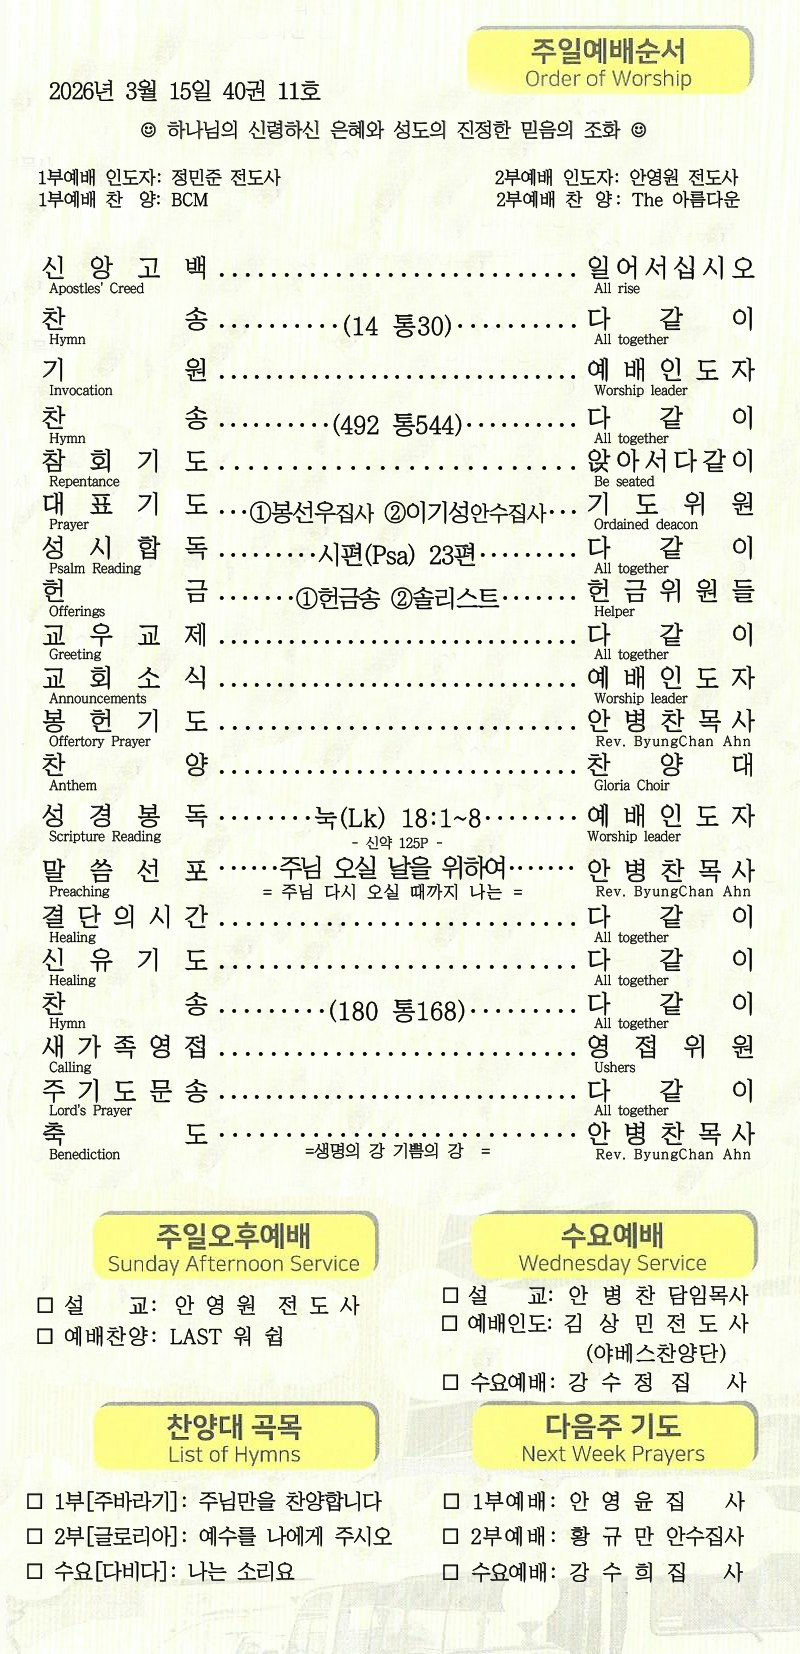 주일예배순서
Order of Worship
2026년 3월 15일 40권 11호
☺ 하나님의 신령하신 은혜와 성도의 진정한 믿음의 조화 ☺
1부예배 인도자: 정민준 전도사 2부예배 인도자: 안영원 전도사
1부예배 찬 양: BCM 2부예배 찬 양: The 아름다운
신 앙 고 백 ............................ 일어서십시오
Apostles' Creed All rise
찬 송 ··········(14 통30)·········· 다 같 이
Hymn All together
기 원 ............................ 예 배 인 도 자
Invocation Worship leader
찬 송 ·········(492 통544)········· 다 같 이
Hymn All together
참 회 기 도 ......................... 앉아서다같이
Repentance Be seated
대 표 기 도 ···①봉선우집사 ②이기성안수집사··· 기 도 위 원
Prayer Ordained deacon
성 시 합 독 ·········시편(Psa) 23편········· 다 같 이
Psalm Reading All together
헌 금 ·······①헌금송 ②솔리스트······· 헌 금 위 원 들
Offerings Helper
교 우 교 제 ............................ 다 같 이
Greeting All together
교 회 소 식 ............................ 예 배 인 도 자
Announcements Worship leader
봉 헌 기 도 ............................ 안 병 찬 목 사
Offertory Prayer Rev. ByungChan Ahn
찬 양 ............................ 찬 양 대
Anthem Gloria Choir
성 경 봉 독 ········눅(Lk) 18:1~8········ 예 배 인 도 자
Scripture Reading - 신약 125P - Worship leader
말 씀 선 포 ······주님 오실 날을 위하여······· 안 병 찬 목 사
Preaching = 주님 다시 오실 때까지 나는 = Rev. ByungChan Ahn
결 단 의 시 간 ............................ 다 같 이
Healing All together
신 유 기 도 ............................ 다 같 이
Healing All together
찬 송 ·········(180 통168)········· 다 같 이
Hymn All together
새 가 족 영 접 ............................ 영 접 위 원
Calling Ushers
주 기 도 문 송 ............................ 다 같 이
Lord's Prayer All together
축 도 ............................ 안 병 찬 목 사
Benediction =생명의 강 기쁨의 강 = Rev. ByungChan Ahn
주일오후예배
Sunday Afternoon Service
□ 설 교: 안 영 원 전 도 사
□ 예배찬양: LAST 워 쉽
수요예배
Wednesday Service
□ 설 교: 안 병 찬 담임목사
□ 예배인도: 김 상 민 전 도 사
(야베스찬양단)
□ 수요예배: 강 수 정 집 사
찬양대 곡목
List of Hymns
□ 1부[주바라기]: 주님만을 찬양합니다
□ 2부[글로리아]: 예수를 나에게 주시오
□ 수요[다비다]: 나는 소리요
다음주 기도
Next Week Prayers
□ 1부예배: 안 영 윤 집 사
□ 2부예배: 황 규 만 안수집사
□ 수요예배: 강 수 희 집 사